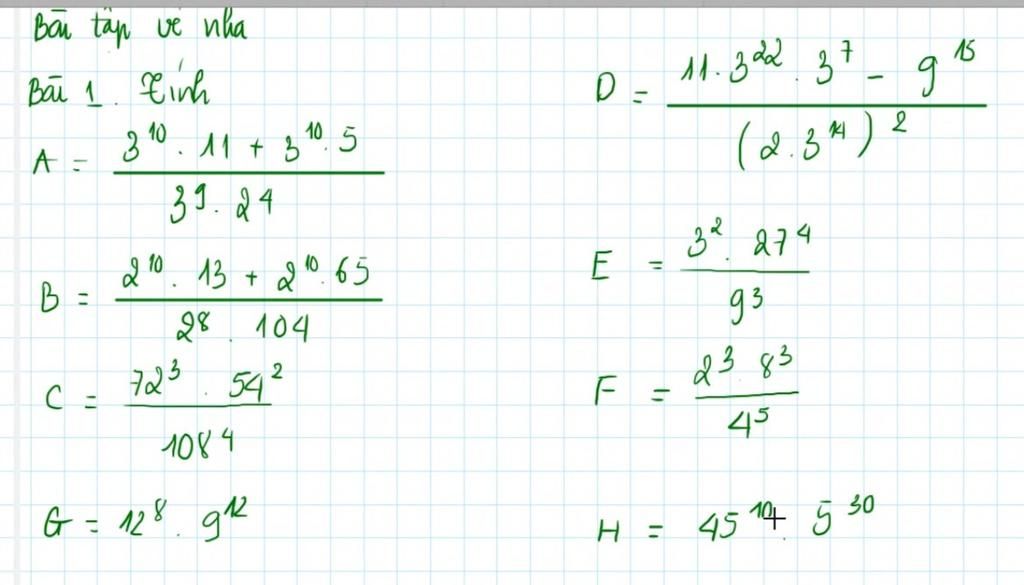 Bài tập về nhà
Bài 1. Tính
A = \frac{3^{10} . 11 + 3^{10} . 5}{3^9 . 2^4}
B = \frac{2^{10} . 13 + 2^{10} . 65}{2^8 . 104}
C = \frac{72^3 . 54^2}{108^4}
G = 12^8 . 9^{12}
D = \frac{11 . 3^{22} . 3^7 - 9^{15}}{(2 . 3^{14})^2}
E = \frac{3^2 . 27^4}{9^3}
F = \frac{2^3 8^3}{4^5}
H = 45^{10} . 5^{30}